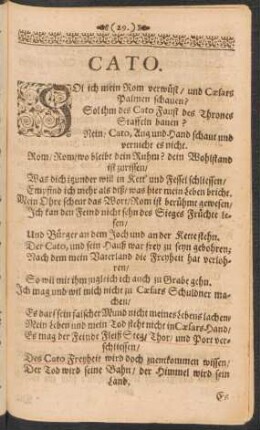 (29.)
CATO.
SOl ich mein Rom verwüst/ und Cæsars
Palmen schauen/
Sol ihm des Cato Faust des Thrones
Staffeln bauen?
Nein; Cato, Aug und Hand schaut und
vernicht es nicht.
Rom/ Rom/ wo bleibt dein Ruhm? dein Wohlstand
ist zurissen/
Was dich itzunder will in Kett' und Fessel schliessen/
Empfind ich mehr als diß/ was hier mein Leben bricht.
Mein Ohre scheut das Wort/ Rom ist berühmt gewesen/
Ich kan den Feind nicht sehn des Sieges Früchte le-
sen/
Und Bürger an dem Joch und an der Kette stehn.
Der Cato, und sein Hauß war frey zu seyn gebohren;
Nach dem mein Vaterland die Freyheit hat verloh-
ren/
So wil mit ihm zugleich ich auch zu Grabe gehn.
Ich mag und wil mich nicht zu Cæsars Schuldner ma-
chen/
Es darf sein falscher Mund nicht meines Lebens lachen/
Mein Leben und mein Tod steht nicht in Cæsars Hand/
Es mag der Feinde Fleiß Steg/ Thor/ und Port ver-
schliessen/
Des Cato Freyheit wird doch zuentkommen wissen/
Der Tod wird seine Bahn/ der Himmel wird sein
Land.